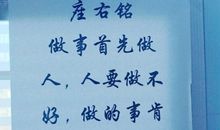 座右铭
做事首先做
人，人要做不
好，做的事肯